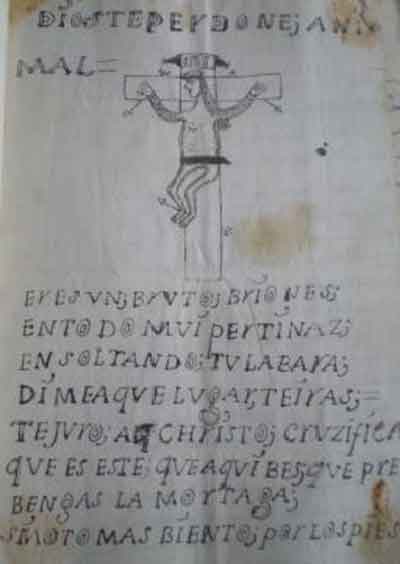 DIOS TE PERDONE; AN
MAL=
ERES VN; BRUTO; BRIONES;
EN TODO MUI PERTINAZ;
EN SOLTANDO; TU LA BARA;
DIME A QUE LUGAR, TE IRAS;=
TE JURO; A CHRISTO; CRUZIFICA
QUE ES ESTE; QUE AQUI BES; QUE PRE
BENGAS LA MORTAGA;
SINO TOMAS BIENTO; POR LOS PIES